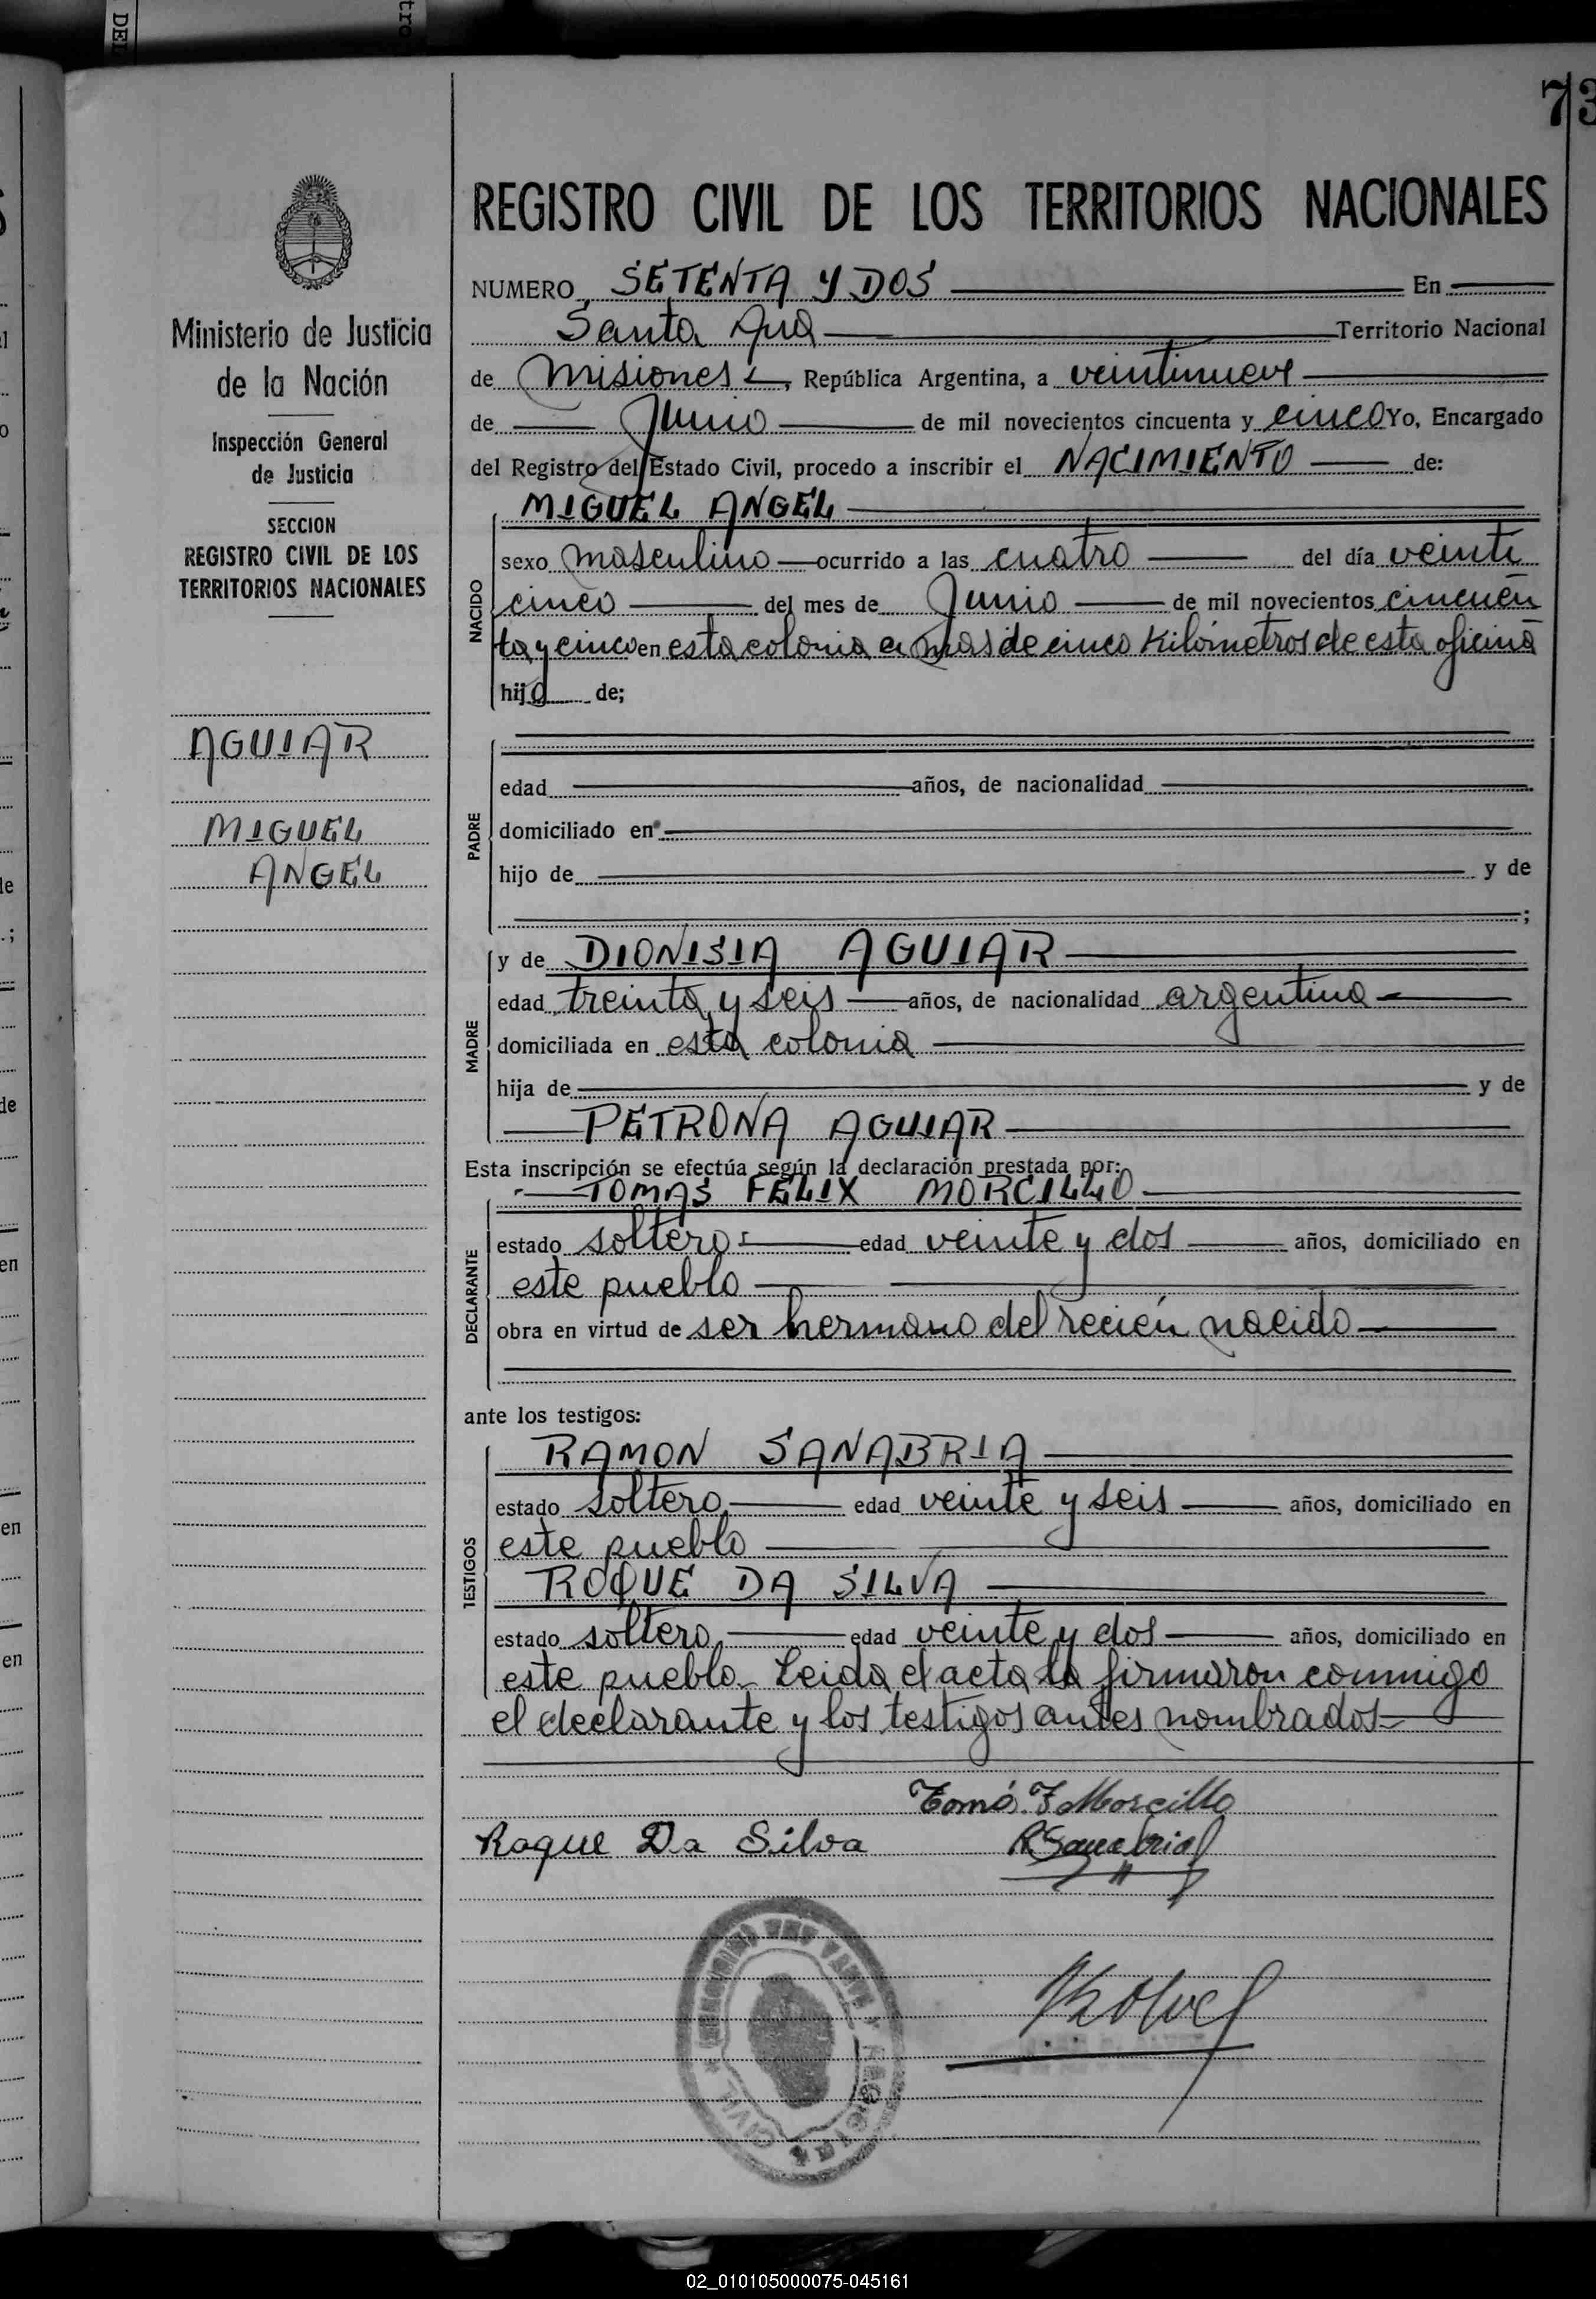 73
REGISTRO CIVIL DE LOS TERRITORIOS NACIONALES
Ministerio de Justicia
de la Nación
Inspección General
de Justicia
SECCION
REGISTRO CIVIL DE LOS
TERRITORIOS NACIONALES
AGUIAR
MIGUEL
ANGEL
NUMERO SETENTA Y DOS En
Santa Ana Territorio Nacional
de Misiones, República Argentina, a veintinueve
de Junio de mil novecientos cincuenta y cinco Yo, Encargado
del Registro del Estado Civil, procedo a inscribir el NACIMIENTO de:
NACIDO
MIGUEL ANGEL
sexo masculino ocurrido a las cuatro del día veinti
cinco del mes de Junio de mil novecientos cincuen
ta y cinco en esta colonia a mas de cinco Kilómetros de esta oficina
hijo de;
PADRE
edad años, de nacionalidad
domiciliado en
hijo de y de
;
MADRE
y de DIONISIA AGUIAR
edad treinta y seis años, de nacionalidad argentina
domiciliada en esta colonia
hija de y de
PETRONA AGUIAR
Esta inscripción se efectúa según la declaración prestada por:
DECLARANTE
TOMAS FELIX MORCILLO
estado soltero edad veinte y dos años, domiciliado en
este pueblo
obra en virtud de ser hermano del recién nacido
ante los testigos:
TESTIGOS
RAMON SANABRIA
estado soltero edad veinte y seis años, domiciliado en
este pueblo
ROQUE DA SILVA
estado soltero edad veinte y dos años, domiciliado en
este pueblo. Leida el acta la firmaron conmigo
el declarante y los testigos antes nombrados
Tomás F Morcillo
Roque Da Silva R Sanabria
CIVIL
02_010105000075-045161